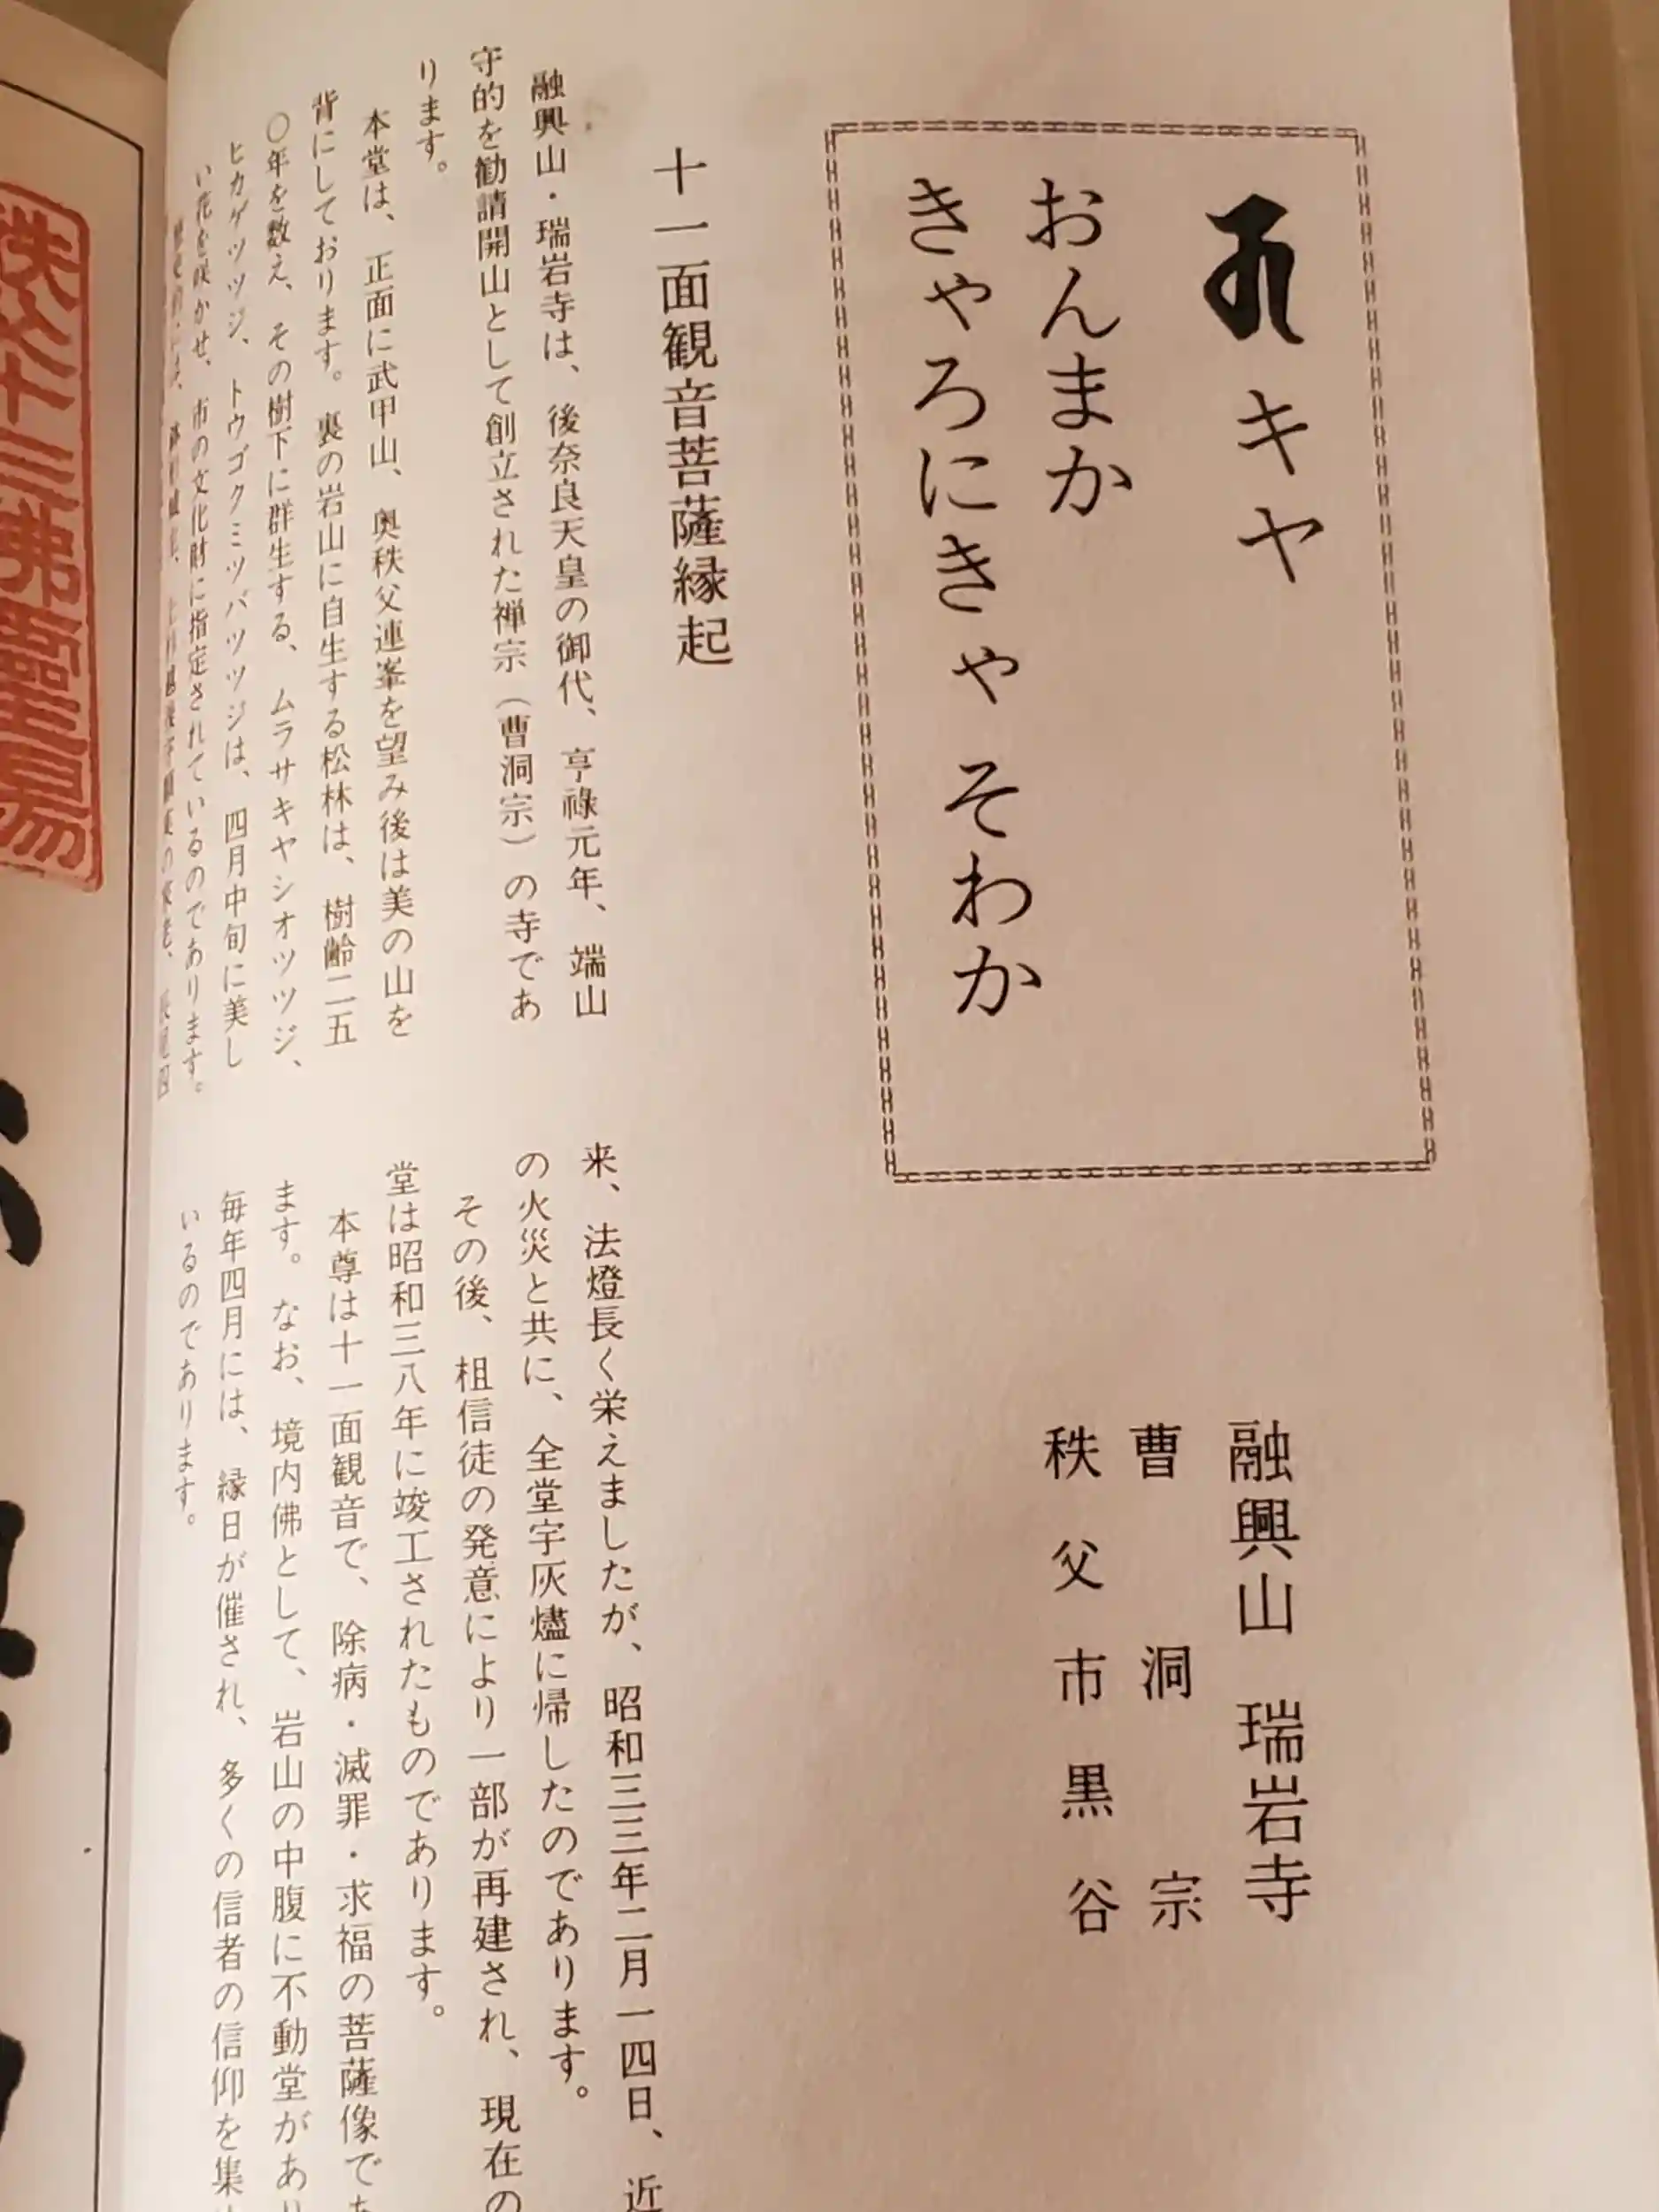 キヤ
おんまか
きゃろにきゃ そわか
融興山 瑞岩寺
曹洞宗
秩父市黒谷
十一面観音菩薩縁起
融興山・瑞岩寺は、後奈良天皇の御代、亨祿元年、端山
守的を勧請開山として創立された禅宗（曹洞宗）の寺であ
ります。
本堂は、正面に武甲山、奥秩父連峯を望み後は美の山を
背にしております。裏の岩山に自生する松林は、樹齢二五
〇年を数え、その樹下に群生する、ムラサキヤシオツツジ、
ヒカゲツツジ、トウゴクミツバツツジは、四月中旬に美し
い花を咲かせ、市の文化財に指定されているのであります。
来、法燈長く栄えましたが、昭和三三年二月一四日、近
の火災と共に、全堂宇灰燼に帰したのであります。
その後、柤信徒の発意により一部が再建され、現在の
堂は昭和三八年に竣工されたものであります。
本尊は十一面観音で、除病・滅罪・求福の菩薩像であ
ます。なお、境内佛として、岩山の中腹に不動堂があり
毎年四月には、縁日が催され、多くの信者の信仰を集
いるのであります。
秩父十三佛霊場